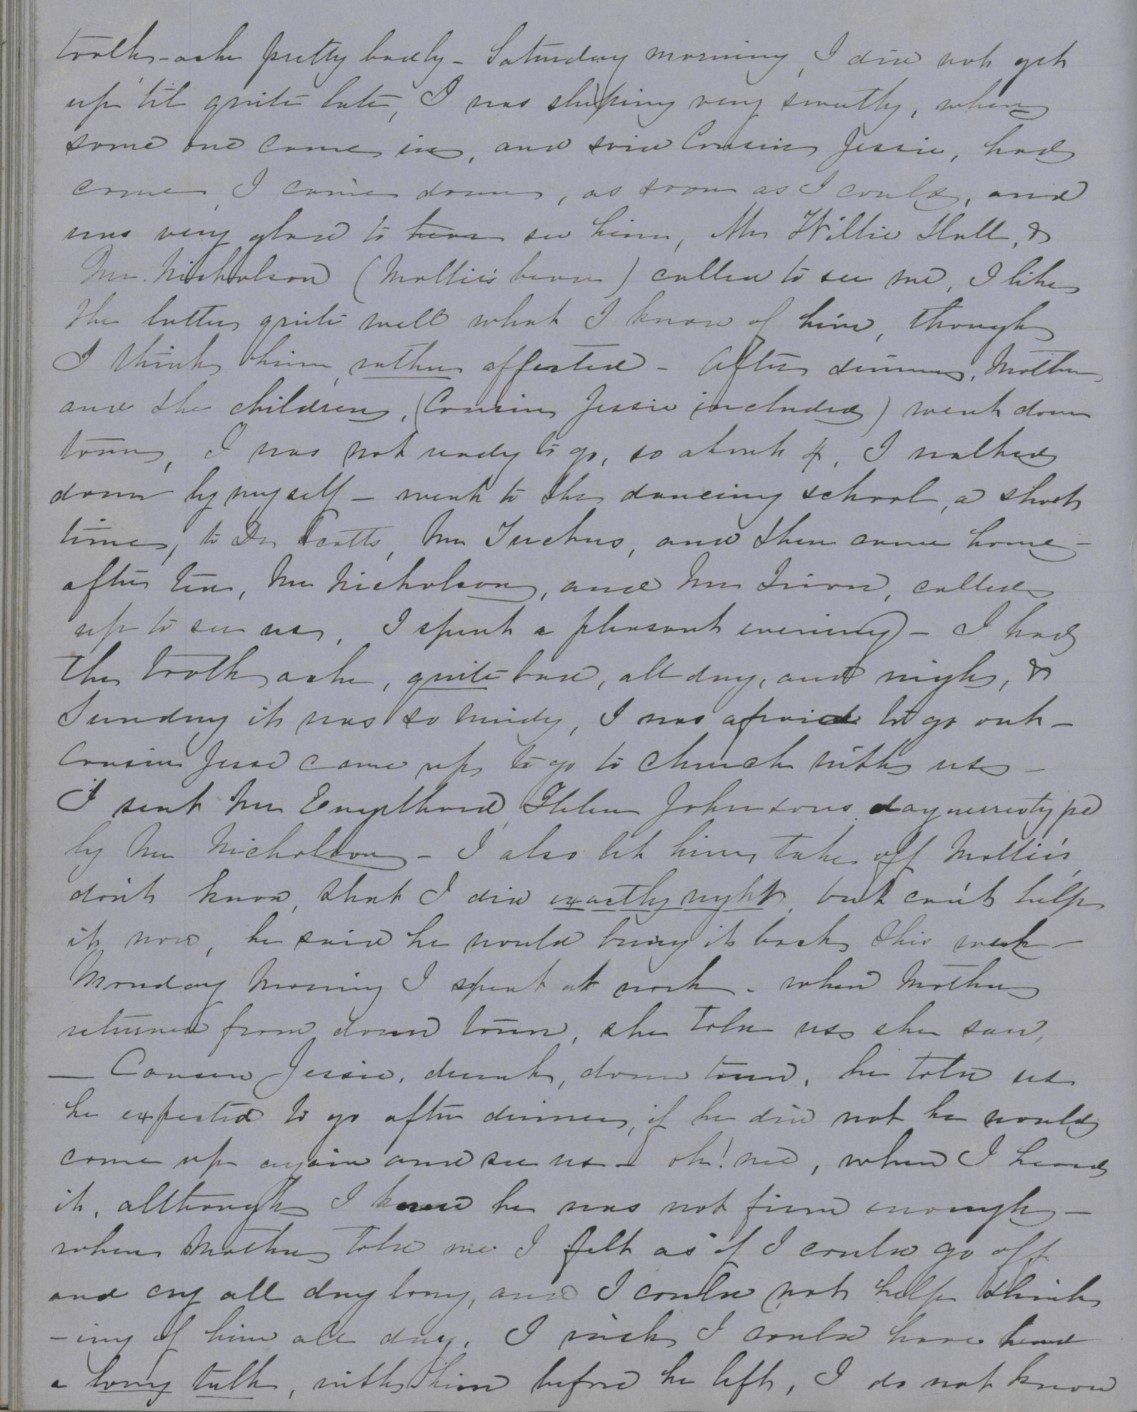 tooth-ache pretty badly - Saturday morning, I did not get
up 'til quite late, I was sleeping very sweetly, when
some one came in, and said Cousin Jessie, had
come, I came down, as soon as I could, and
was very glad to see him, Mr Willie Hall, &
Mr. Nicholson (Mollie's beau) called to see me, I like
the latter quite well what I know of him, though
I think him, rather affected - After dinner, Mother
and the children, (Cousin Jessie included) went down
town, I was not ready to go, so about 4, I walked
down by myself - went to the dancing school, a short
time, to Dr Scotts, Mr Tuckers, and then came home -
after tea, Mr Nicholson, and Mr Irion, called
up to see us, I spent a pleasant evening - I had
the tooth ache, quite bad, all day, and night, &
Sunday it was so windy, I was afraid to go out -
Cousin Jesse came up, to go to church with us -
I sent Mr Helen Johnsons dayuerreotype
by Mr Nicholson - I also let him take off Mollie's,
don't know, that I did exactly right, but can't help
it, now, he said he would bring it back this week -
Monday Morning I spent at work - when Mother
returned from down town, she told us she saw,
- Cousin Jessie, drunk, down town, he told us
he expected to go after dinner, if he did not he would
come up again and see us - oh! me, when I heard
it, although I knew he was not firm enough -
when Mother told me I felt as if I could go off
and cry all day long, and I could not help think
-ing of him all day, I wish I could have had
a long talk, with him before he left, I do not know